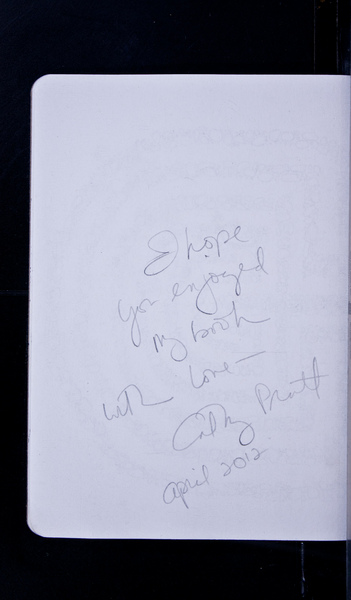 I hope
you enjoyed
my book
with love —
Cathy Pratt
april 2012